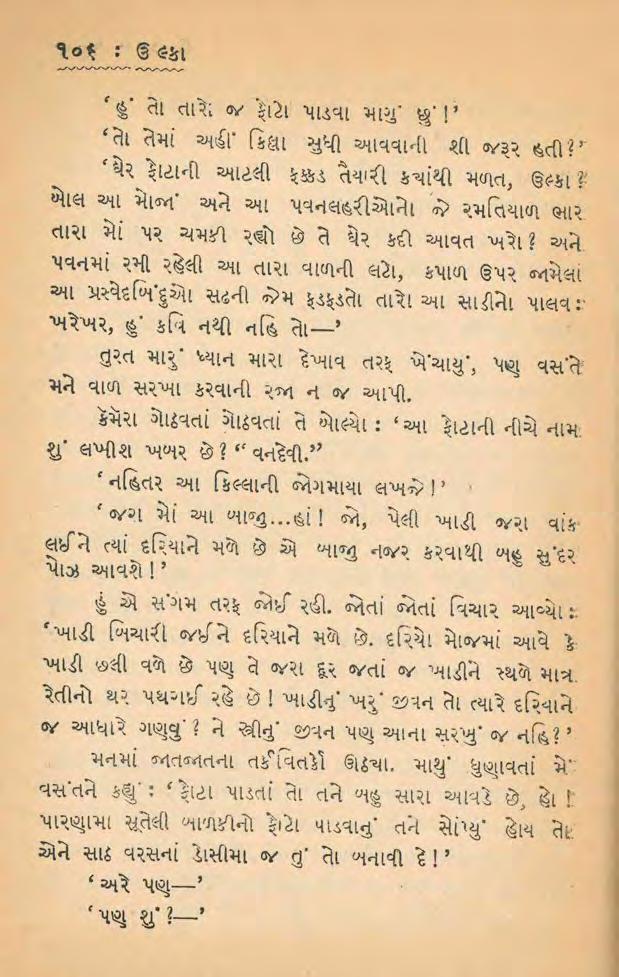 ૧૦૬ : ઉલ્કા
‘હું તો તારો જ ફોટો પાડવા માગું છું!’
‘તો તેમાં અહીં કિલ્લા સુધી આવવાની શી જરૂર હતી?’
‘ઘેર ફોટાની આટલી ફક્કડ તૈયારી ક્યાંથી મળત, ઉલ્કા?
બોલ આ મોજાં અને આ પવનલહરીઓનો જે રમતિયાળ ભાર
તારા મોં પર ચમકી રહ્યો છે તે ઘેર કદી આવત ખરો? અને
પવનમાં રમી રહેલી આ તારા વાળની લટો, કપાળ ઉપર જામેલાં
આ પ્રસ્વેદબિંદુઓ સઢની જેમ ફડફડતો તારો આ સાડીનો પાલવ :
ખરેખર, હું કવિ નથી નહિ તો—’
તુરત મારું ધ્યાન મારા દેખાવ તરફ ખેંચાયું, પણ વસંતે
મને વાળ સરખા કરવાની રજા ન જ આપી.
કૅમૅરા ગોઠવતાં ગોઠવતાં તે બોલ્યો : ‘આ ફોટાની નીચે નામ
શું લખીશ ખબર છે? “વનદેવી.”
‘નહિતર આ કિલ્લાની જોગમાયા લખજે!’
‘જરા મોં આ બાજુ...હાં! જો, પેલી ખાડી જરા વાંક
લઈને ત્યાં દરિયાને મળે છે એ બાજુ નજર કરવાથી બહુ સુંદર
પોઝ આવશે!’
હું એ સંગમ તરફ જોઈ રહી. જોતાં જોતાં વિચાર આવ્યો :
‘ખાડી બિચારી જઈને દરિયાને મળે છે. દરિયો મોજમાં આવે કે
ખાડી છલી વળે છે પણ તે જરા દૂર જતાં જ ખાડીને સ્થળે માત્ર
રેતીનો થર પથરાઈ રહે છે! ખાડીનું ખરું જીવન તો ત્યારે દરિયાને
જ આધારે ગણવું? ને સ્ત્રીનું જીવન પણ આના સરખું જ નહિ?’
મનમાં જાતજાતના તર્કવિતર્કો ઊઠ્યા. માથું ધુણાવતાં મેં
વસંતને કહ્યું : ‘ફોટા પાડતાં તો તને બહુ સારા આવડે છે, હો!
પારણામા સૂતેલી બાળકીનો ફોટો પાડવાનું તને સોંપ્યું હોય તો
એને સાઠ વરસનાં ડોસીમા જ તું તો બનાવી દે!’
‘અરે પણ—’
‘પણ શું?—’